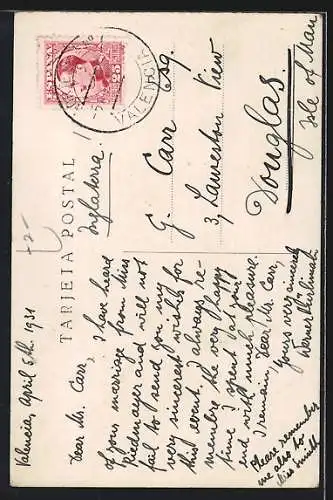 TARJETA POSTAL
ESPAÑA
VALENCIA
Inglaterra!
G. Carr Esq.
3, Laureston View
Douglas.
Isle of Man
Valencia, April 5th. 1931
Dear Mr. Carr,
I have heard
of your marriage from Miss
Riedmayer and will not
fail to send you my
very sincerest wishes for
this event. I always re-
membre the very happy
time I spent at your
end with much pleasure.
I remain, Dear Mr. Carr,
Yours very sincerely
Werner
Please remember
me also to
Miss